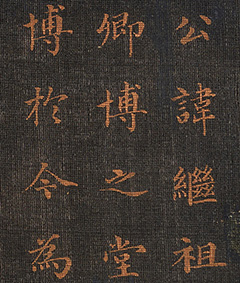 公諱繼祖
卿博之堂
博於今為